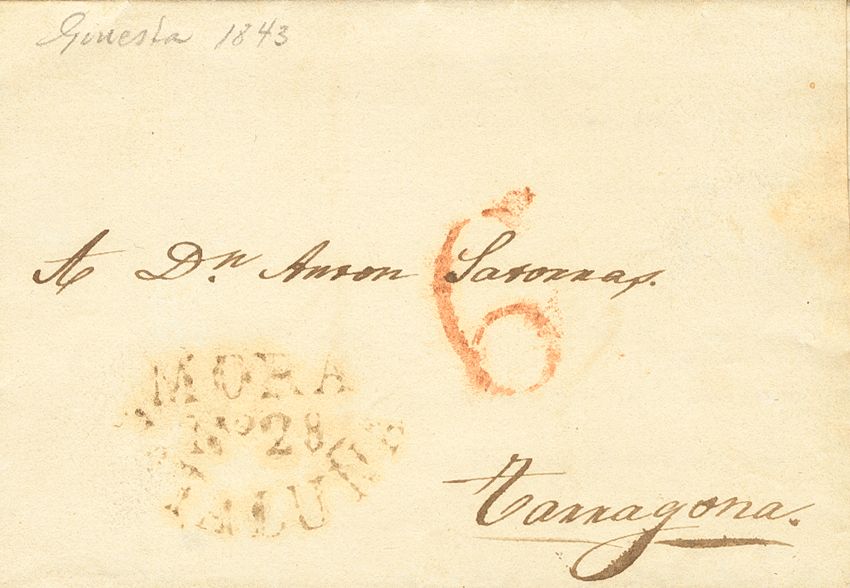 Ginesta 1843
A Dn. Anton Satorras.
6
MORA
No 28
Tarragona.